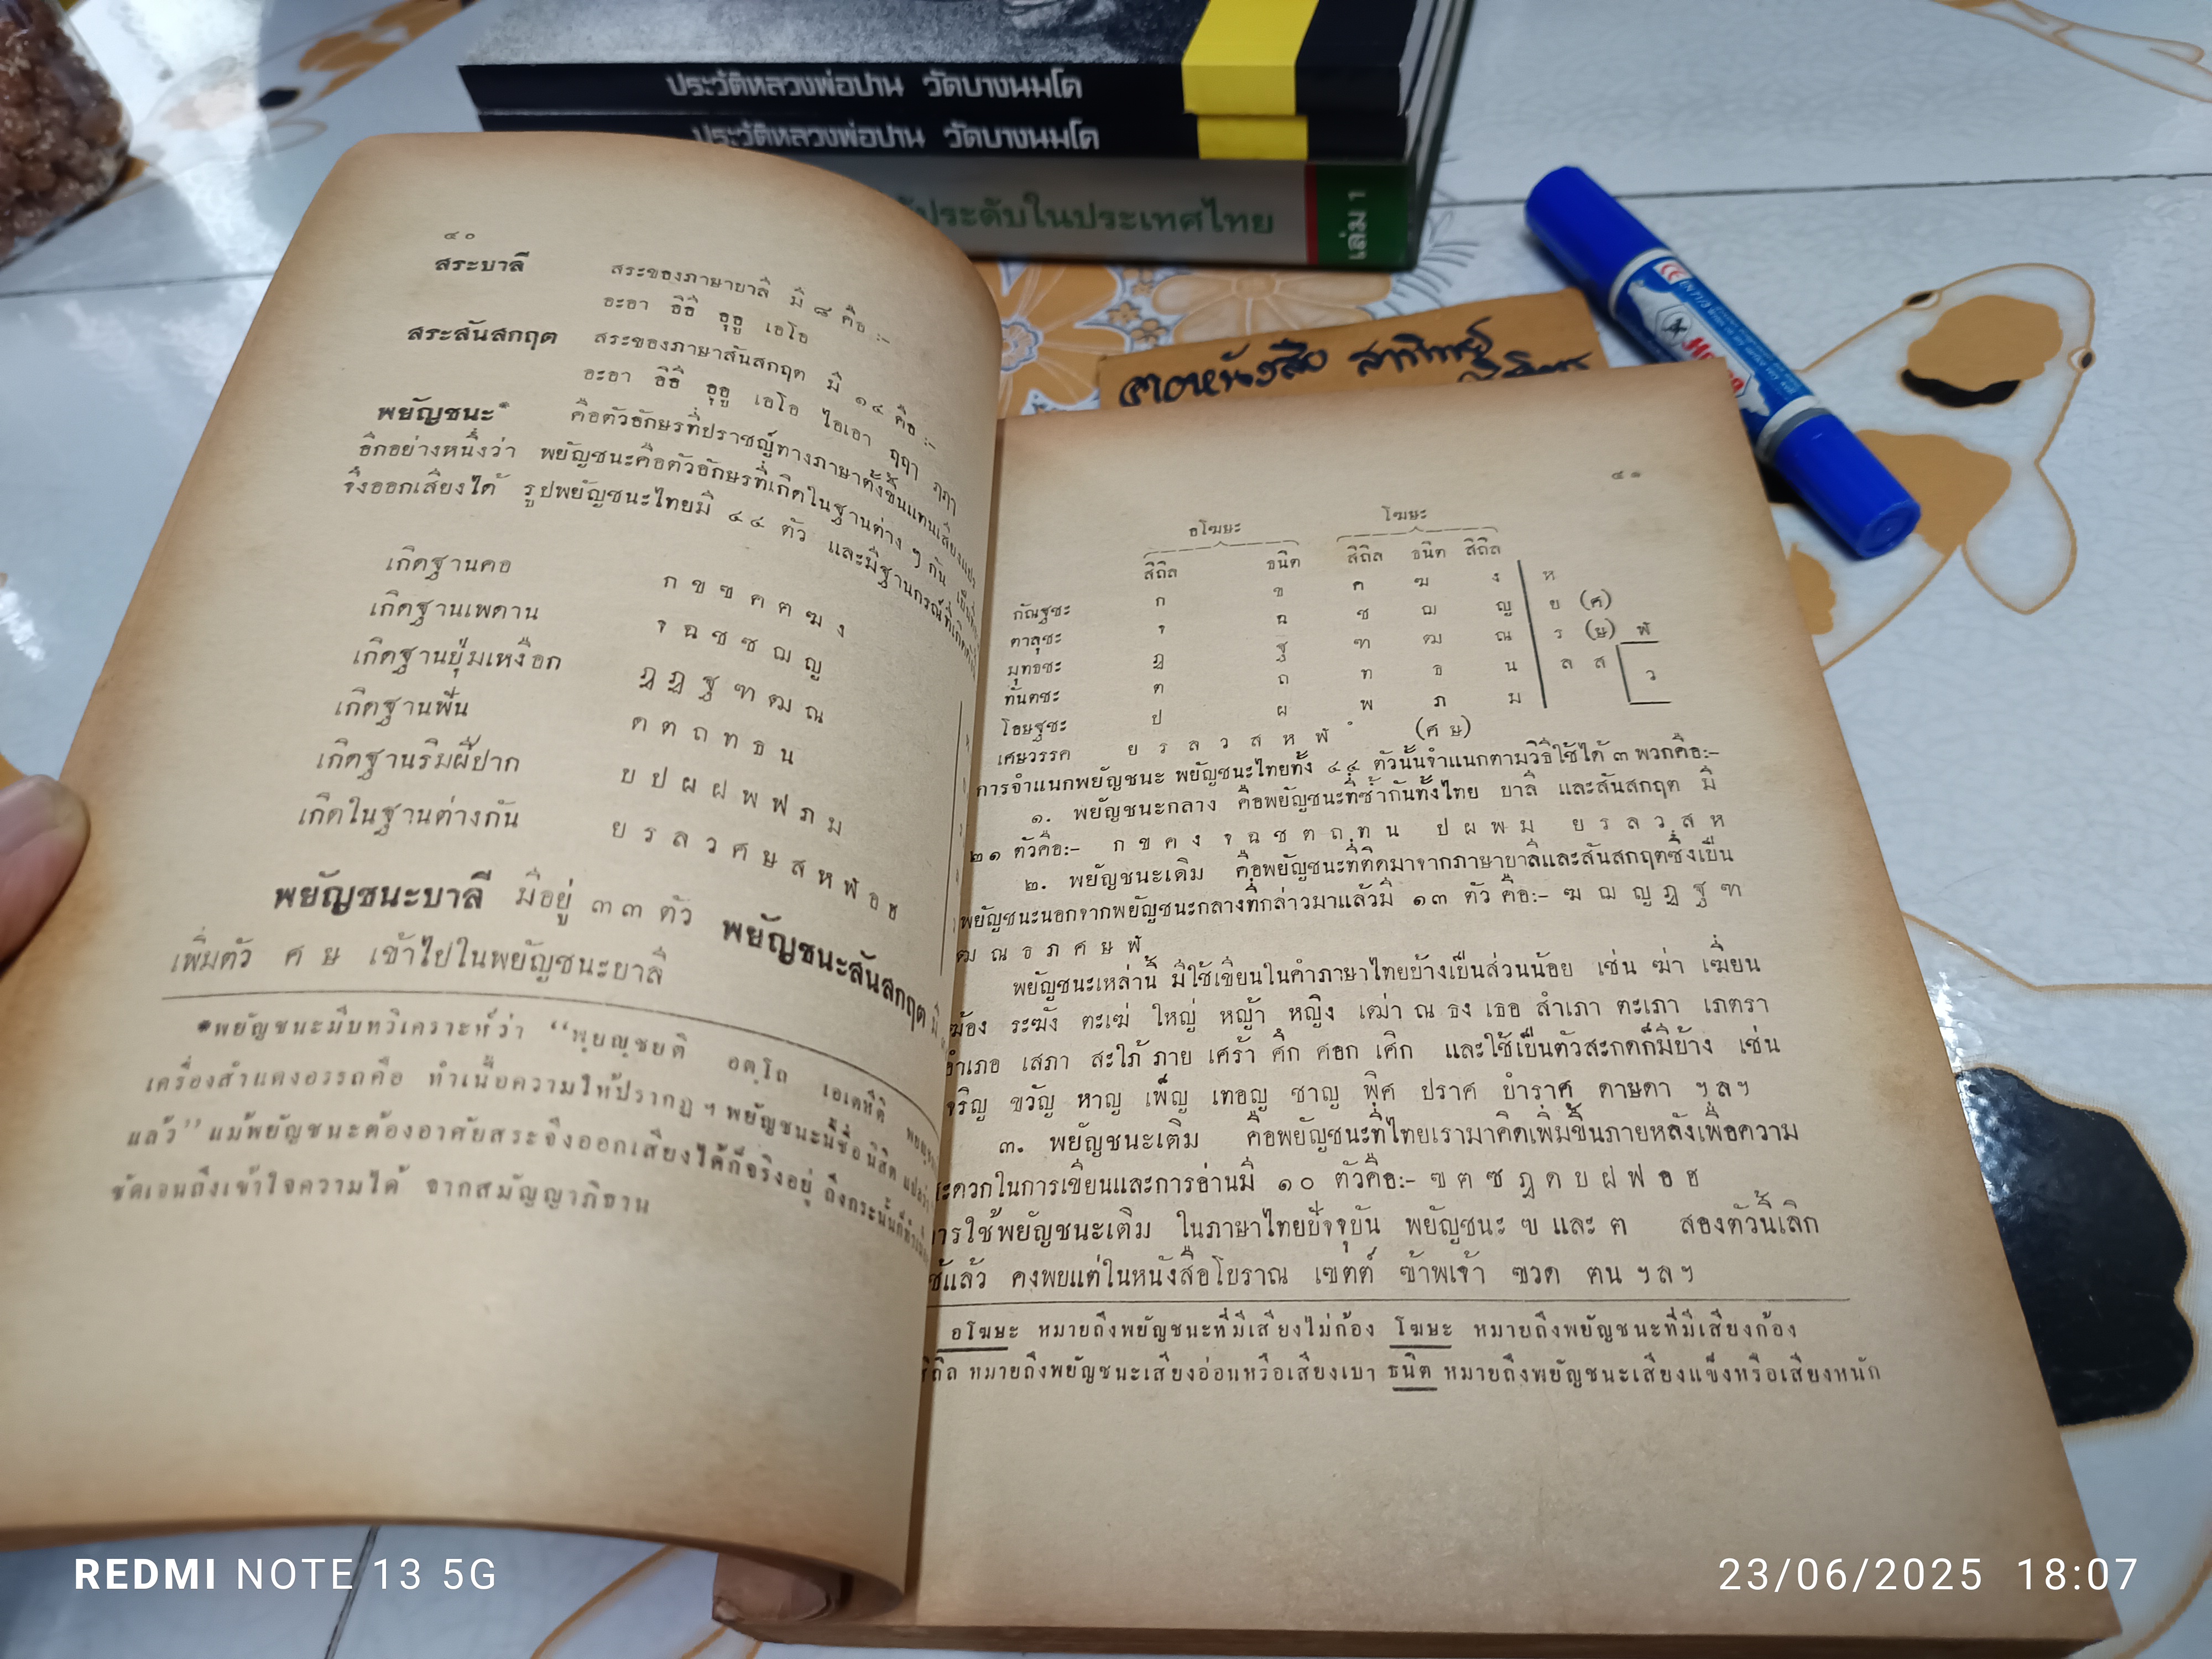 ประวัติหลวงพ่อปาน วัดบางนมโค
ประวัติหลวงพ่อปาน วัดบางนมโค
ประดับในประเทศไทย เล่ม 1
๔๐
สระบาลี สระของภาษาบาลี มี ๘ คือ :-
อะอา อิอี อุอู เอโอ
สระสันสกฤต สระของภาษาสันสกฤต มี ๑๔ คือ :-
อะอา อิอี อุอู เอโอ ไอเอา ฤฤา ฦฦา
พยัญชนะ* คือตัวอักษรที่ปราชญ์ทางภาษาตั้งขึ้นแทนเสียงแปร
อีกอย่างหนึ่งว่า พยัญชนะคือตัวอักษรที่เกิดในฐานต่าง ๆ กัน
จึงออกเสียงได้ รูปพยัญชนะไทยมี ๔๔ ตัว และมีฐานกรณ์ที่เกิดดังนี้
เกิดฐานคอ ก ข ฃ ค ฅ ฆ ง
เกิดฐานเพดาน จ ฉ ช ซ ฌ ญ
เกิดฐานปุ่มเหงือก ฎ ฏ ฐ ฑ ฒ ณ
เกิดฐานฟัน ด ต ถ ท ธ น
เกิดฐานริมฝีปาก บ ป ผ ฝ พ ฟ ภ ม
เกิดในฐานต่างกัน ย ร ล ว ศ ษ ส ห ฬ อ ฮ
พยัญชนะบาลี มีอยู่ ๓๓ ตัว พยัญชนะสันสกฤต
เพิ่มตัว ศ ษ เข้าไปในพยัญชนะบาลี
*พยัญชนะมีบทวิเคราะห์ว่า “พฺยญฺชยติ อตฺโถ เอเตหีติ
เครื่องสำแดงอรรถคือ ทำเนื้อความให้ปรากฏ ฯ พยัญชนะนี้ชื่อนิสิต แปลว่า
แล้ว” แม้พยัญชนะต้องอาศัยสระจึงออกเสียงได้ก็จริงอยู่ ถึงกระนั้นก็
ชัดเจนถึงเข้าใจความได้ จากสมัญญาภิธาน
ลาดหนังสือ
๔๑
อโฆษะ โฆษะ
สิถิล ธนิต สิถิล ธนิต สิถิล
กัณฐชะ ก ข ค ฆ ง ห
ตาลุชะ จ ฉ ช ฌ ญ ย (ศ)
มุทธชะ ฏ ฐ ฑ ฒ ณ ร (ษ) ฬ
ทันตชะ ต ถ ท ธ น ล ส
โอษฐชะ ป ผ พ ภ ม ว
เศษวรรค ย ร ล ว ส ห ฬ ํ (ศ ษ)
การจำแนกพยัญชนะ พยัญชนะไทยทั้ง ๔๔ ตัวนั้นจำแนกตามวิธีใช้ได้ ๓ พวกคือ:-
๑. พยัญชนะกลาง คือพยัญชนะที่ซ้ำกันทั้งไทย บาลี และสันสกฤต มี
๒๑ ตัวคือ:- ก ข ค ง จ ฉ ช ต ถ ท น ป ผ พ ม ย ร ล ว ส ห
๒. พยัญชนะเดิม คือพยัญชนะที่ติดมาจากภาษาบาลีและสันสกฤตซึ่งเป็น
พยัญชนะนอกจากพยัญชนะกลางที่กล่าวมาแล้วมี ๑๓ ตัว คือ:- ฆ ฌ ญ ฏ ฐ ฑ
ฒ ณ ธ ภ ศ ษ ฬ
พยัญชนะเหล่านี้ มีใช้เขียนในคำภาษาไทยบ้างเป็นส่วนน้อย เช่น ฆ่า เฆี่ยน
ฆ้อง ระฆัง ตะเฆ่ ใหญ่ หญ้า หญิง เฒ่า ณ ธง เธอ สำเภา ตะเภา เภตรา
อำเภอ เสภา สะใภ้ ภาย เศร้า ศึก ศอก เศิก และใช้เป็นตัวสะกดก็มีบ้าง เช่น
จริญ ขวัญ หาญ เพ็ญ เทอญ ชาญ พิศ ปราศ บำราศ ดาษดา ฯลฯ
๓. พยัญชนะเติม คือพยัญชนะที่ไทยเรามาคิดเพิ่มขึ้นภายหลังเพื่อความ
สะดวกในการเขียนและการอ่านมี ๑๐ ตัวคือ:- ฃ ฅ ซ ฎ ด บ ฝ ฟ อ ฮ
การใช้พยัญชนะเติม ในภาษาไทยปัจจุบัน พยัญชนะ ฃ และ ฅ สองตัวนี้เลิก
ใช้แล้ว คงพบแต่ในหนังสือโบราณ เฃตต์ ฃ้าพเจ้า ฃวด ฅน ฯลฯ
อโฆษะ หมายถึงพยัญชนะที่มีเสียงไม่ก้อง โฆษะ หมายถึงพยัญชนะที่มีเสียงก้อง
สิถิล หมายถึงพยัญชนะเสียงอ่อนหรือเสียงเบา ธนิต หมายถึงพยัญชนะเสียงแข็งหรือเสียงหนัก
REDMI NOTE 13 5G
23/06/2025 18:07